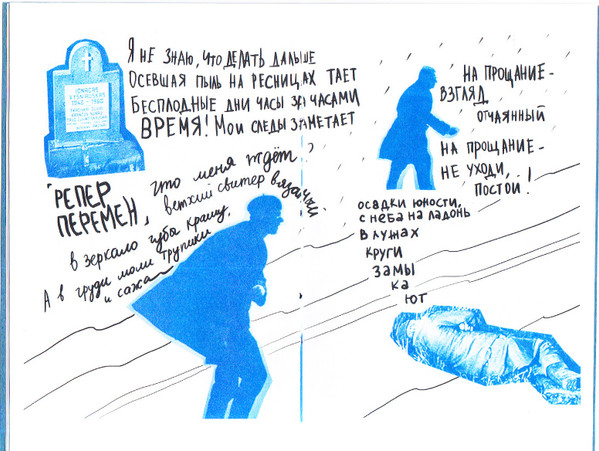 Я НЕ ЗНАЮ, ЧТО ДЕЛАТЬ ДАЛЬШЕ
ОСЕВШАЯ ПЫЛЬ НА РЕСНИЦАХ ТАЕТ
БЕСПЛОДНЫЕ ДНИ ЧАСЫ ЗА ЧАСАМИ
ВРЕМЯ! МОИ СЛЕДЫ ЗАМЕТАЕТ
РЕПЕР
ПЕРЕМЕН,
что меня ждёт
ветхий свитер вязанки
в зеркало губы крашу,
А в груди моли трупики
и сажа
НА ПРОЩАНИЕ-
ВЗГЛЯД
ОТЧАЯННЫЙ
НА ПРОЩАНИЕ-
НЕ УХОДИ,
ПОСТОЙ!
ОСАДКИ ЮНОСТИ,
С НЕБА НА ЛАДОНЬ
В ЛУЖАХ
КРУГИ
ЗАМЫ
КА
ЮТ
IGNACAS
1940 - 1960